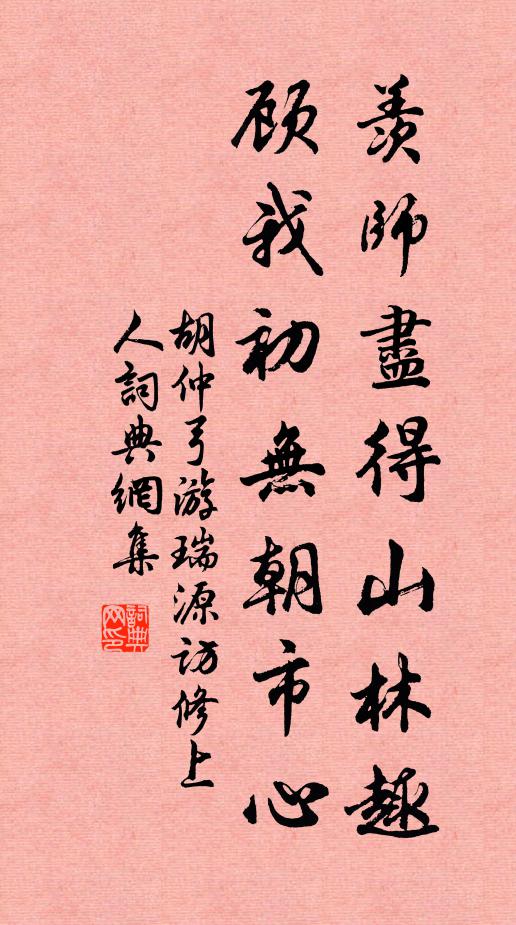 羨師盡得山林趣
顧我初無朝市心
胡仲弓游瑞源訪修上
人詞典網集
詞典网印